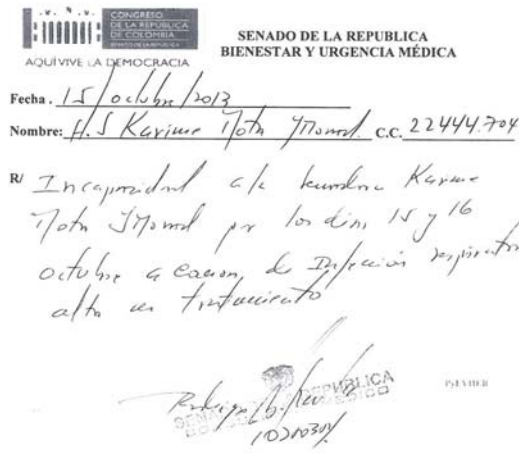 CONGRESO
DE LA REPÚBLICA
DE COLOMBIA
AQUÍ VIVE LA DEMOCRACIA
SENADO DE LA REPUBLICA
BIENESTAR Y URGENCIA MÉDICA
Fecha. 15/octubre/2013
Nombre: H.S Karime Mota y Morad C.C. 22444.704
R/ Incapacidad a la senadora Karime
Mota y Morad por los días 15 y 16
octubre a causa de Infección respiratoria
alta en tratamiento
REPÚBLICA